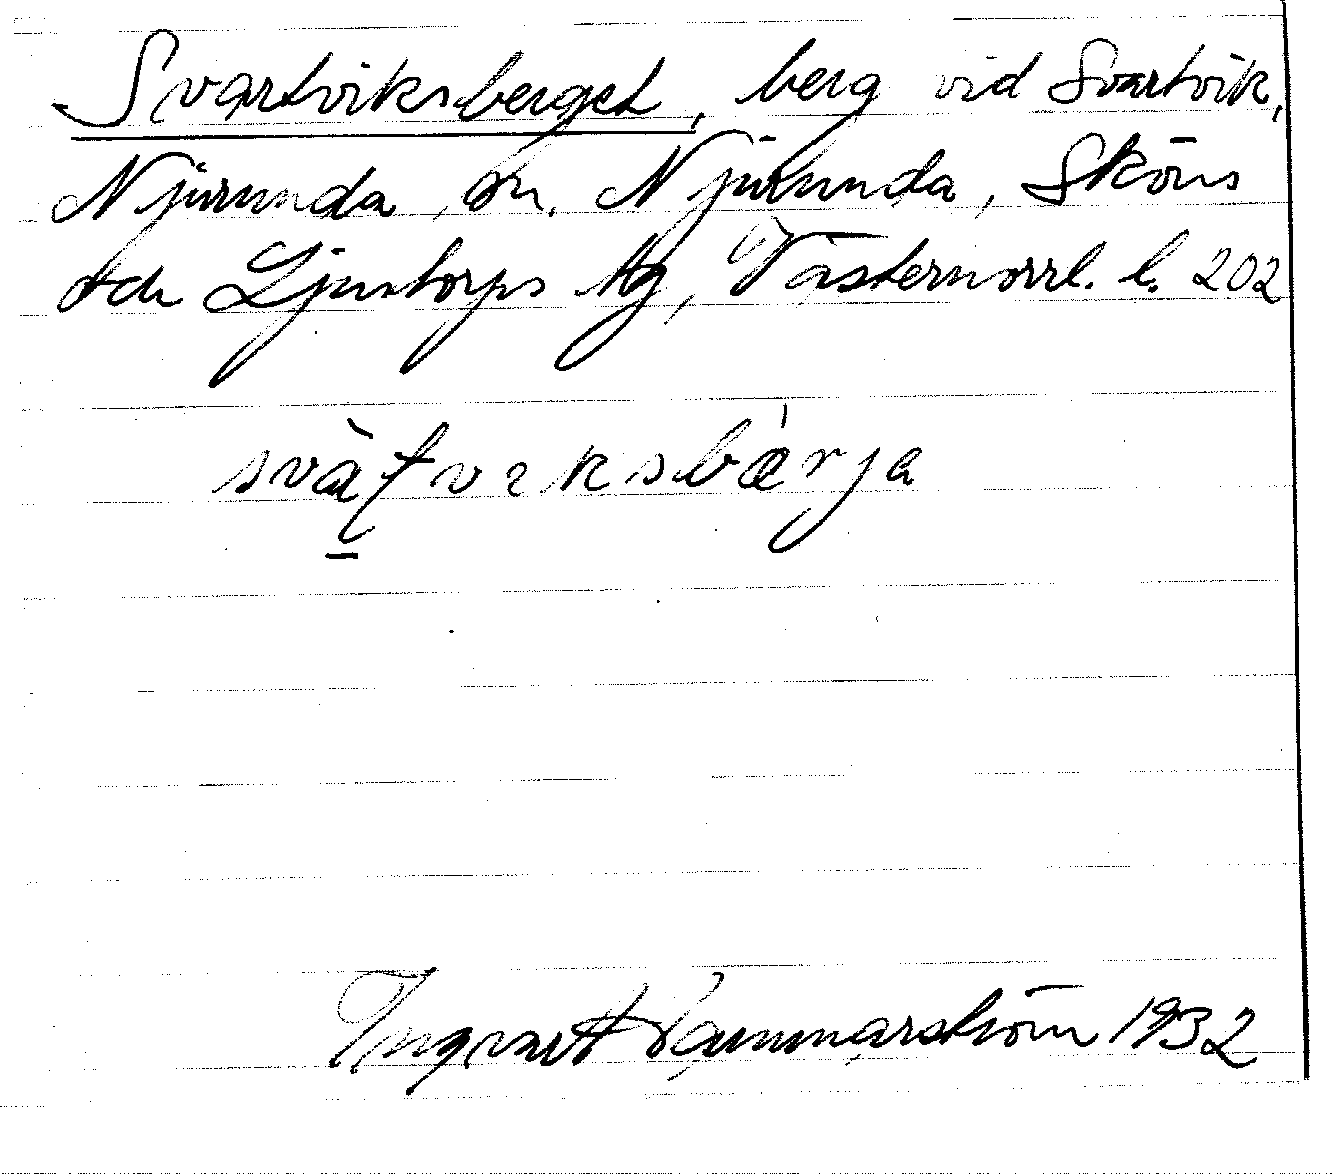 Svartviksberget, berg vid Svartvik,
Njurunda, sn. Njurunda, Sköns
och Ljustorps tg, Västernorrl. l. 202
svàtviksbærja
Ingvart Hammarström 1932